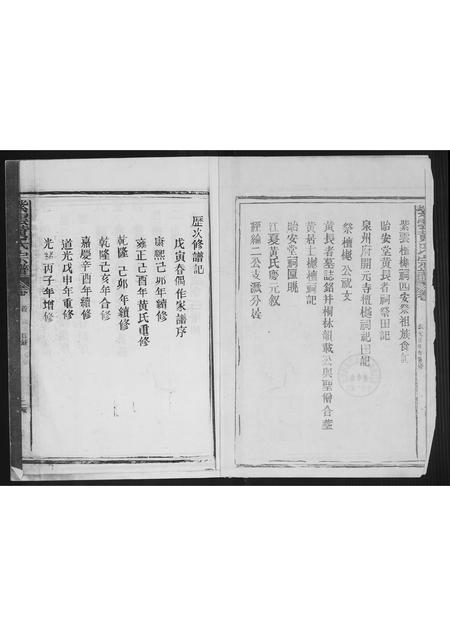 紫雲檀樾祠四安祭祖族食記
貽安堂黃長者祠祭田記
泉州府開元寺檀樾祠祀田記
祭檀樾公祝文
黃長者墓誌銘并桐林韻載公與聖僧合塟
黃居士檀樾祠記
貽安堂祠匾聯
江夏黃氏慶元叙
經綸二公支派分居
歷次修譜記
戊寅春偶作家譜序
康熙己卯年續修
雍正己酉年黃氏重修
乾隆己卯年續修
乾隆己亥年合修
嘉慶辛酉年續修
道光戊申年重修
光緒丙子年增修